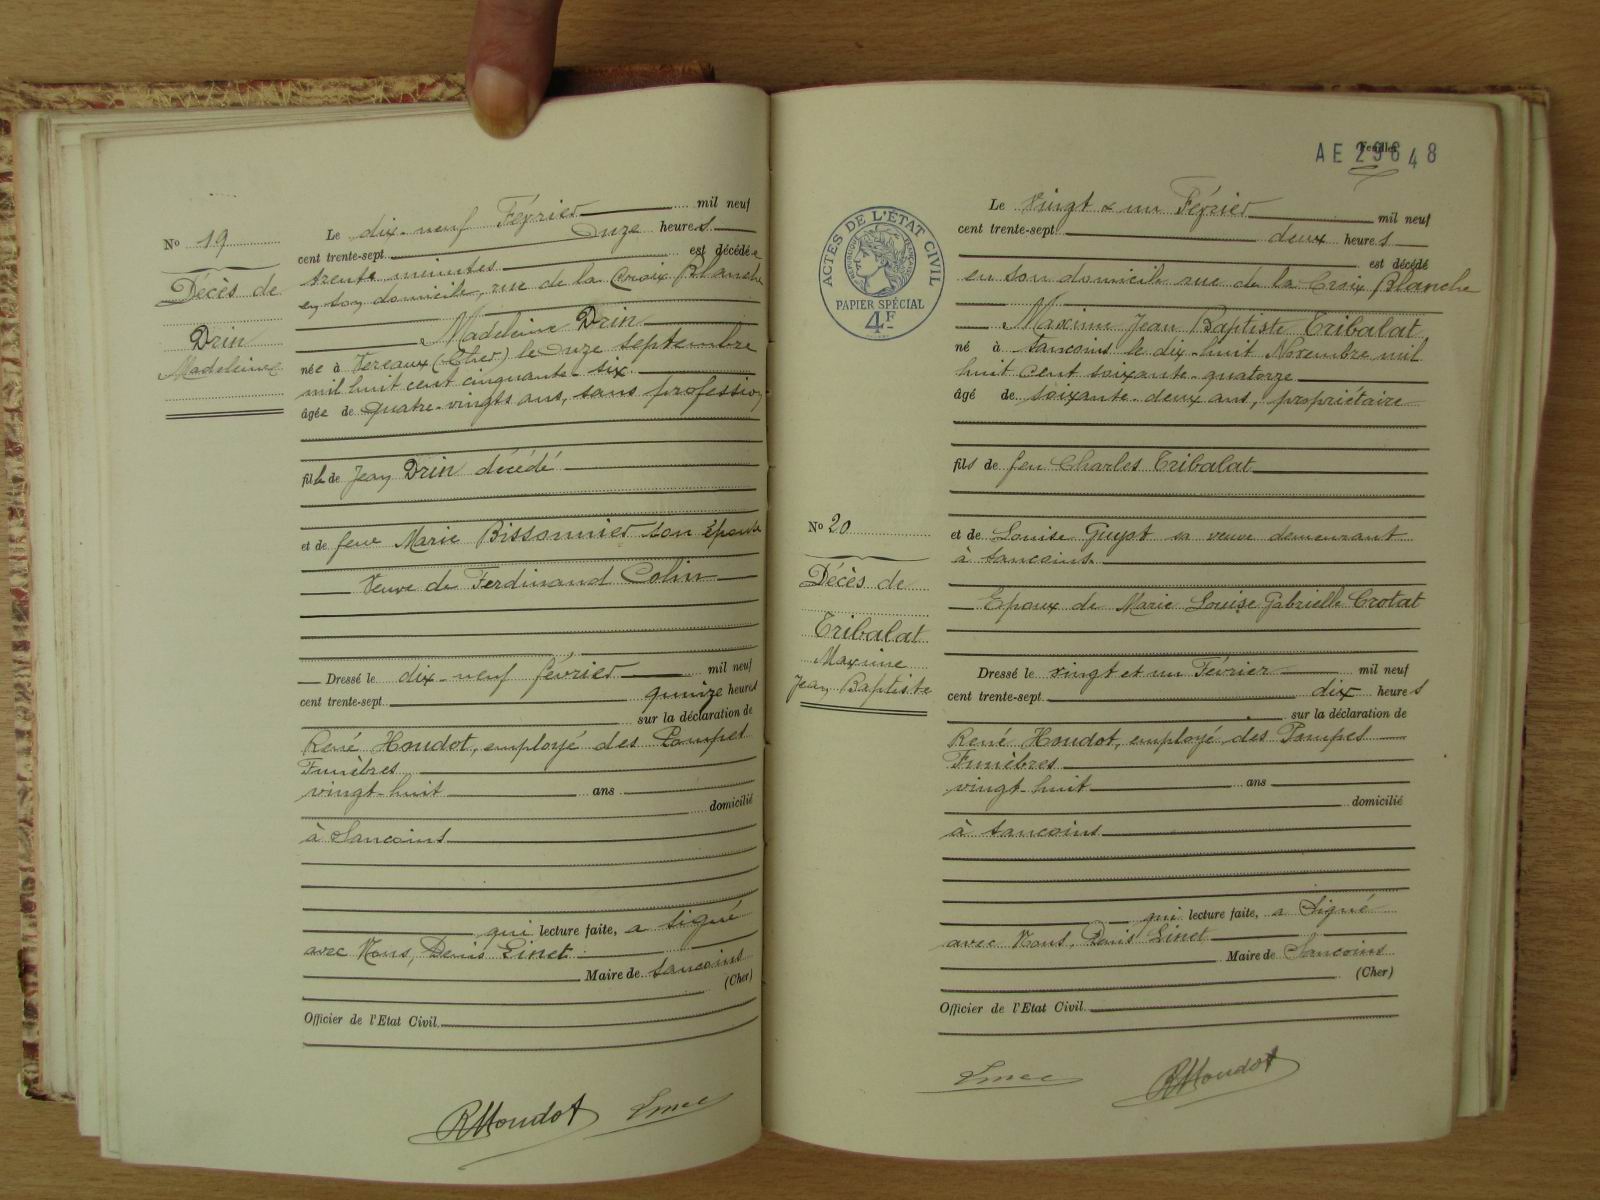 No 19
Décès de
Drin
Madeleine
Le dix-neuf Février mil neuf
cent trente-sept Onze heures
trente minutes est décédée
en son domicile, rue de la Croix Blanche
Madeleine Drin
née à Vereaux (Cher) le Onze septembre
mil huit cent cinquante-six
âgée de quatre-vingts ans, sans profession
fille de Jean Drin décédé
et de feue Marie Bissonnier son épouse
Veuve de Ferdinand Colin
Dressé le dix-neuf février mil neuf
cent trente-sept quinze heures
sur la déclaration de
René Houdot, employé des Pompes
Funèbres
vingt-huit ans
domicilié
à Sancoins
qui lecture faite, a signé
avec Nous, Denis Linet
Maire de Sancoins
(Cher)
Officier de l'Etat Civil
RHoudot Linet
AE 29648
Feuillet
ACTES DE L'ÉTAT CIVIL
RÉPUBLIQUE FRANÇAISE
PAPIER SPÉCIAL
4F
Le Vingt & un Février mil neuf
cent trente-sept deux heures
est décédé
en son domicile rue de la Croix Blanche
Maxime Jean Baptiste Tribalat
né à Sancoins le dix-huit Novembre mil
huit cent soixante-quatorze
âgé de soixante-deux ans, propriétaire
fils de feu Charles Tribalat
No 20
Décès de
Tribalat
Maxime
Jean Baptiste
et de Louise Guyot sa veuve demeurant
à Sancoins
Epoux de Marie Louise Gabrielle Crotat
Dressé le vingt et un Février mil neuf
cent trente-sept dix heures
sur la déclaration de
René Houdot, employé des Pompes
Funèbres
vingt-huit ans
domicilié
à Sancoins
qui lecture faite, a Signé
avec Nous, Denis Linet
Maire de Sancoins
(Cher)
Officier de l'Etat Civil
Linet RHoudot